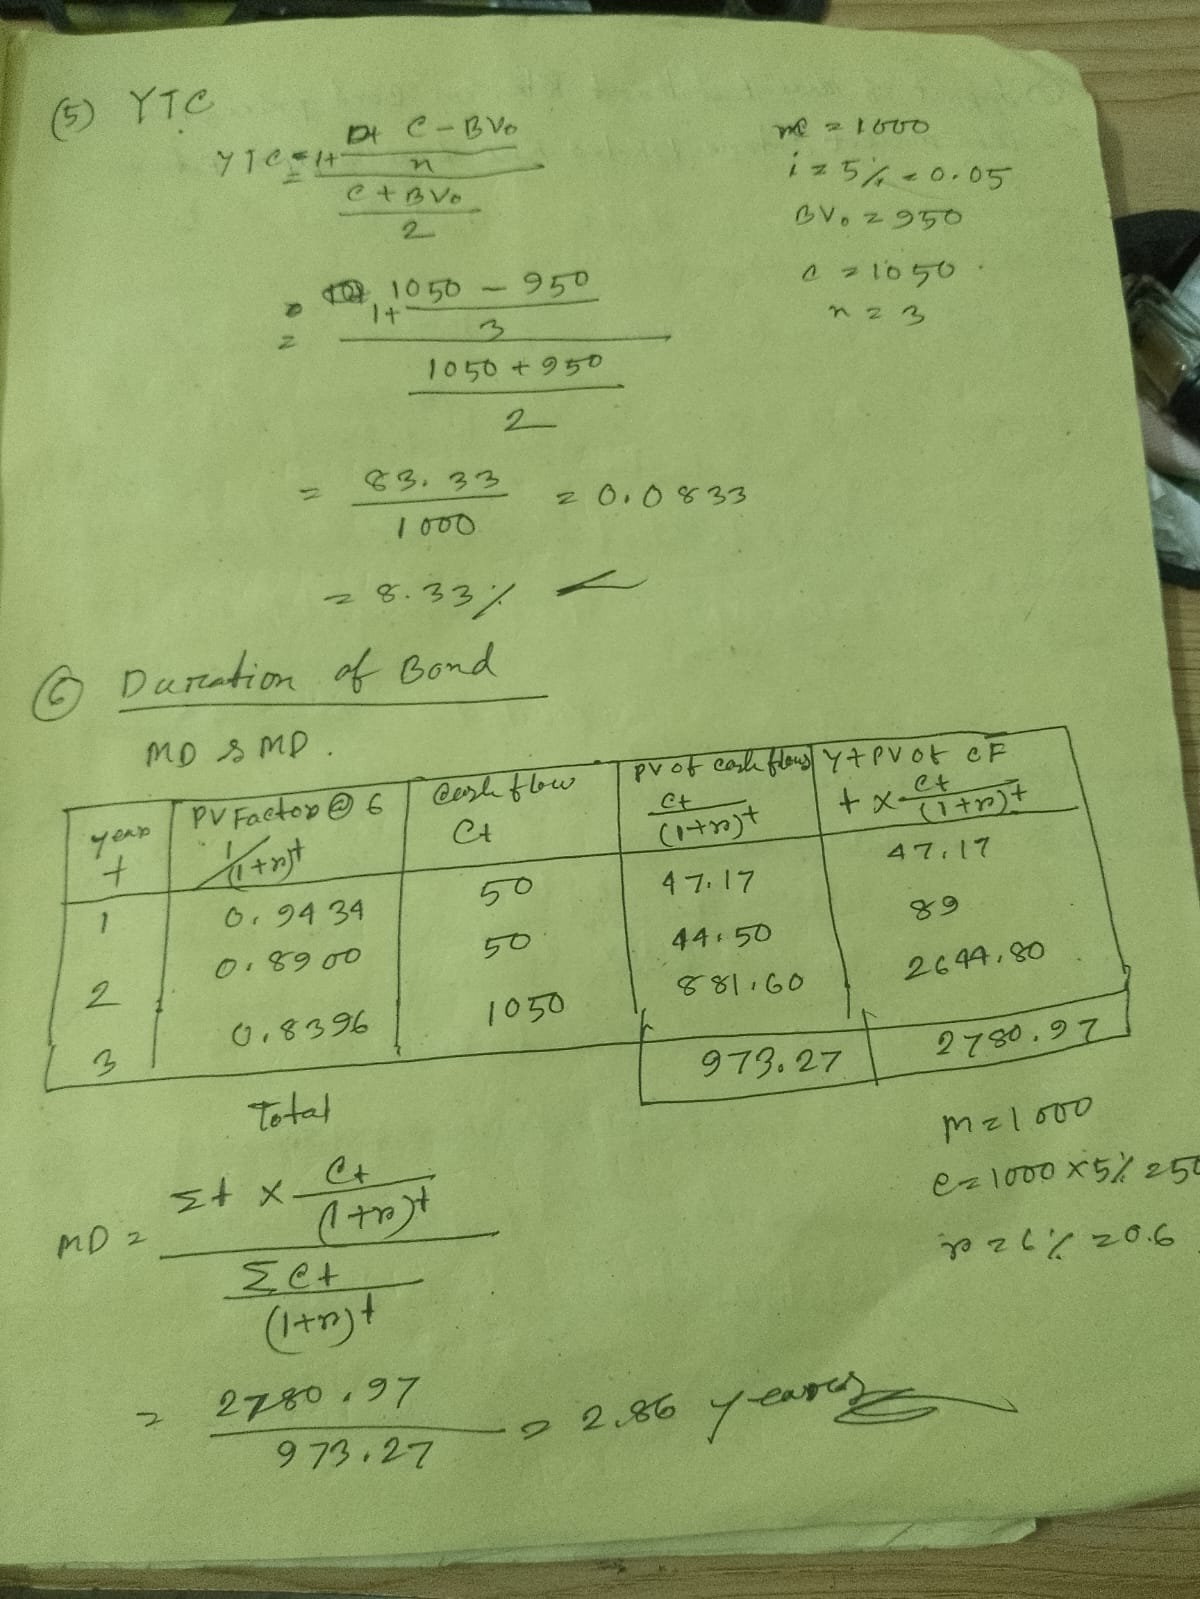 (5) YTC
YTC = I+ C - BV₀ / n
C + BV₀ / 2
m = 1000
i = 5% = 0.05
BV₀ = 950
C = 1050
n = 3
= I+ 1050 - 950 / 3
1050 + 950 / 2
= 83.33 / 1000 = 0.0833
= 8.33%
(6) Duration of Bond
MD & MD.
year t | PV Factor @ 6 1/(1+r)^t | Cash flow Ct | PV of cash flows Ct/(1+r)^t | Y t PV of CF t × Ct/(1+r)^t
1 | 0.9434 | 50 | 47.17 | 47.17
2 | 0.8900 | 50 | 44.50 | 89
3 | 0.8396 | 1050 | 881.60 | 2644.80
Total | 973.27 | 2780.97
M = 1000
C = 1000 × 5% = 50
r = 6% = 0.6
MD = Σt × Ct/(1+r)^t
ΣCt/(1+r)^t
= 2780.97 / 973.27 = 2.86 years